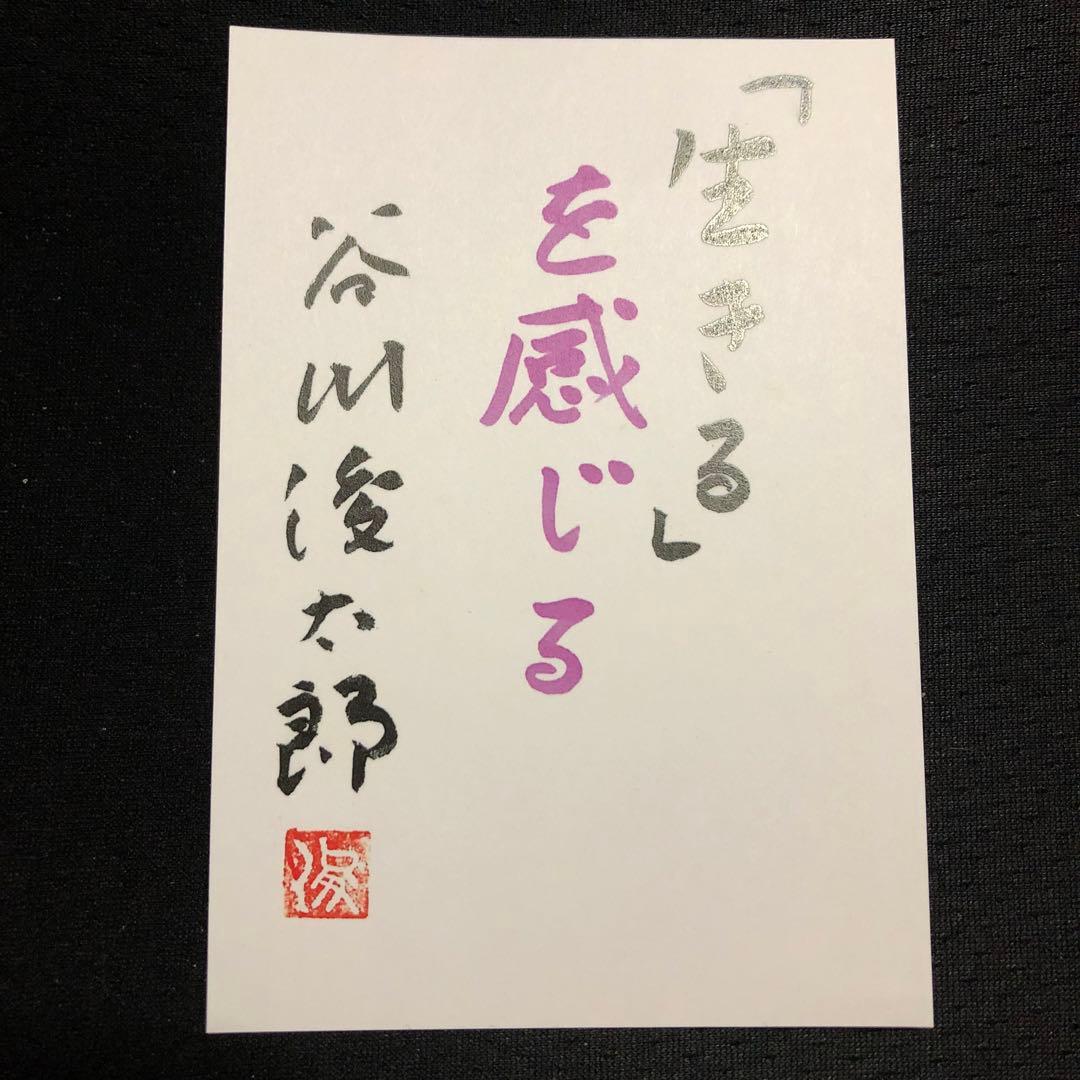 「生きる」
を感じる
谷川俊太郎